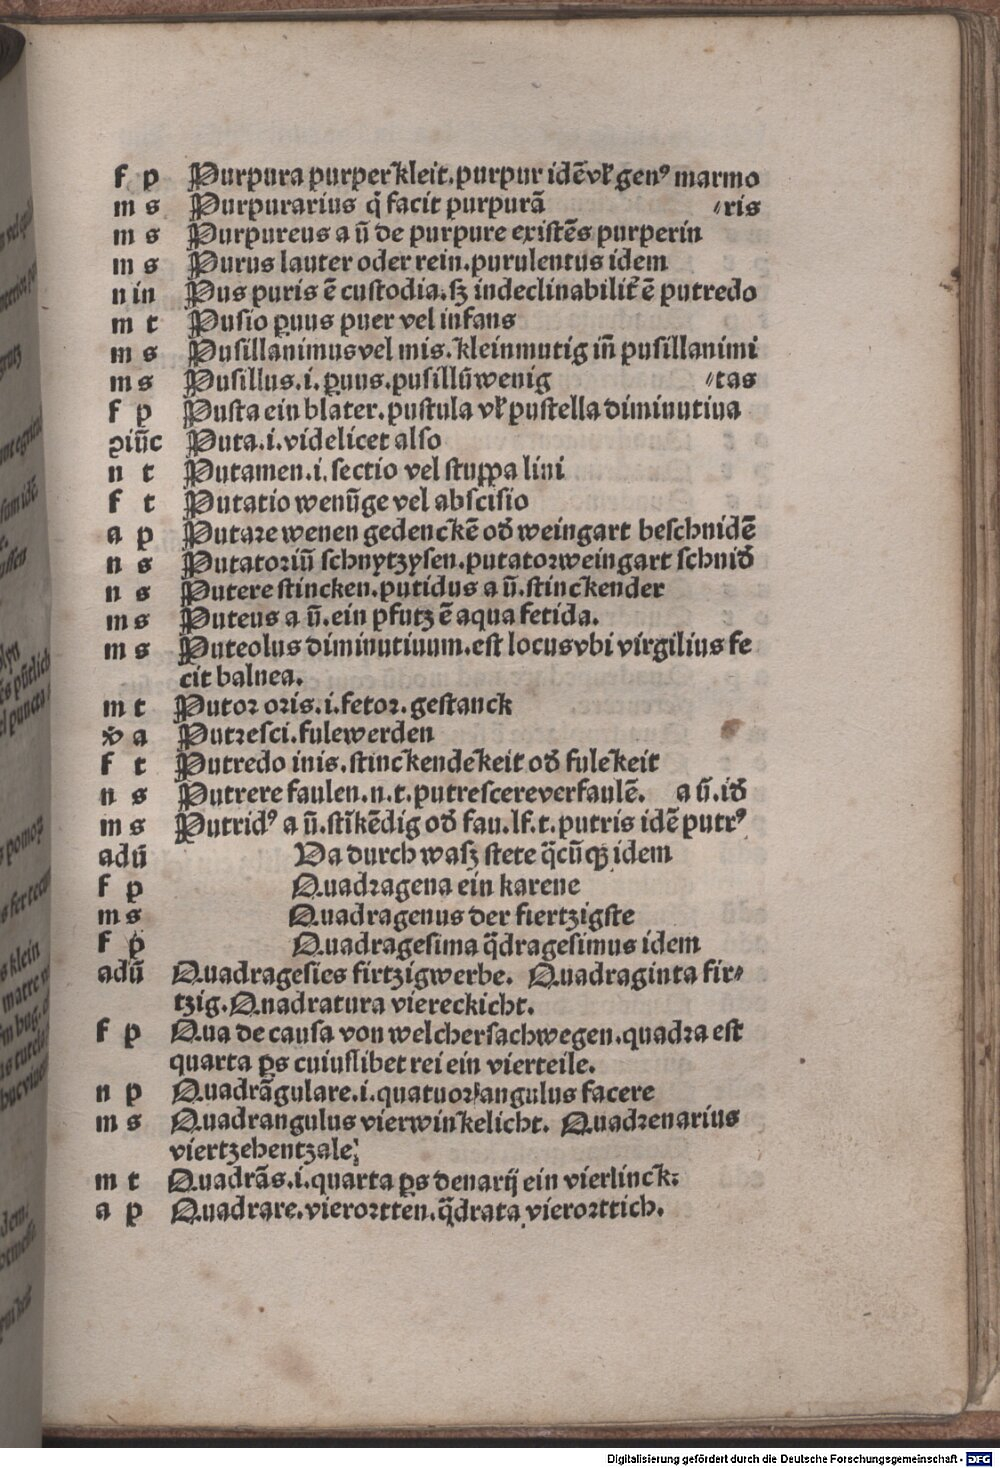 f p Purpura purper kleit. purpur idē vl̕ genꝰ marmo
m s Purpurarius q̇ facit purpurā ⸗ris
m s Purpureus a ū de purpure existēs purperin
m s Purus lauter oder rein. purulentus idem
n in Pus puris ē custodia. sꝫ indeclinabilit̕ ē putredo
m t Pusio ꝑuus puer vel infans
m s Pusillanimus vel mis. kleinmutig iñ pusillanimi
m s Pusillus .i. ꝑuus. pusillū wenig ⸗tas
f p Pusta ein blater. pustula vl̕ pustella diminutiua
ꝯiūc Puta .i. videlicet also
n t Putamen .i. sectio vel stuppa lini
f t Putatio wenūge vel abscisio
a p Putare wenen gedenckē od̕ weingart beschnidē
n s Putatoriū schnytzysen. putator weingart schnid̕
n s Putere stincken. putidus a ū. stinckender
m s Puteus a ū. ein pfutz ē aqua fetida.
m s Puteolus diminutiuum. est locus vbi virgilius fe
cit balnea.
m t Putor oris .i. fetor. gestanck
v̕ a Putresci. fule werden
f t Putredo inis. stinckendekeit od̕ fulekeit
n s Putrere faulen. n. t. putrescere verfaulē. a ū. id̕
m s Putridꝰ a ū. stīkēdig od̕ fau. lf. t. putris idē putrꝰ
adū Qa durch wasꝫ stete q̄cūqꝫ idem
f p Quadragena ein karene
m s Quadragenus der fiertzigste
f p Quadragesima q̄dragesimus idem
adū Quadragesies firtzigwerbe. Quadraginta fir⸗
tzig. Quadratura viereckicht.
f p Qua de causa von welcher sach wegen. quadra est
quarta ꝑs cuiuslibet rei ein vierteile.
n p Quadrāgulare .i. quatuor angulus facere
m s Quadrangulus vierwinkelicht. Quadrenarius
viertzehentzale
m t Quadrās .i. quarta ꝑs denarij ein vierlinck:
a p Quadrare. vierortten. q̄drata vierorttich.
Digitalisierung gefördert durch die Deutsche Forschungsgemeinschaft - DFG